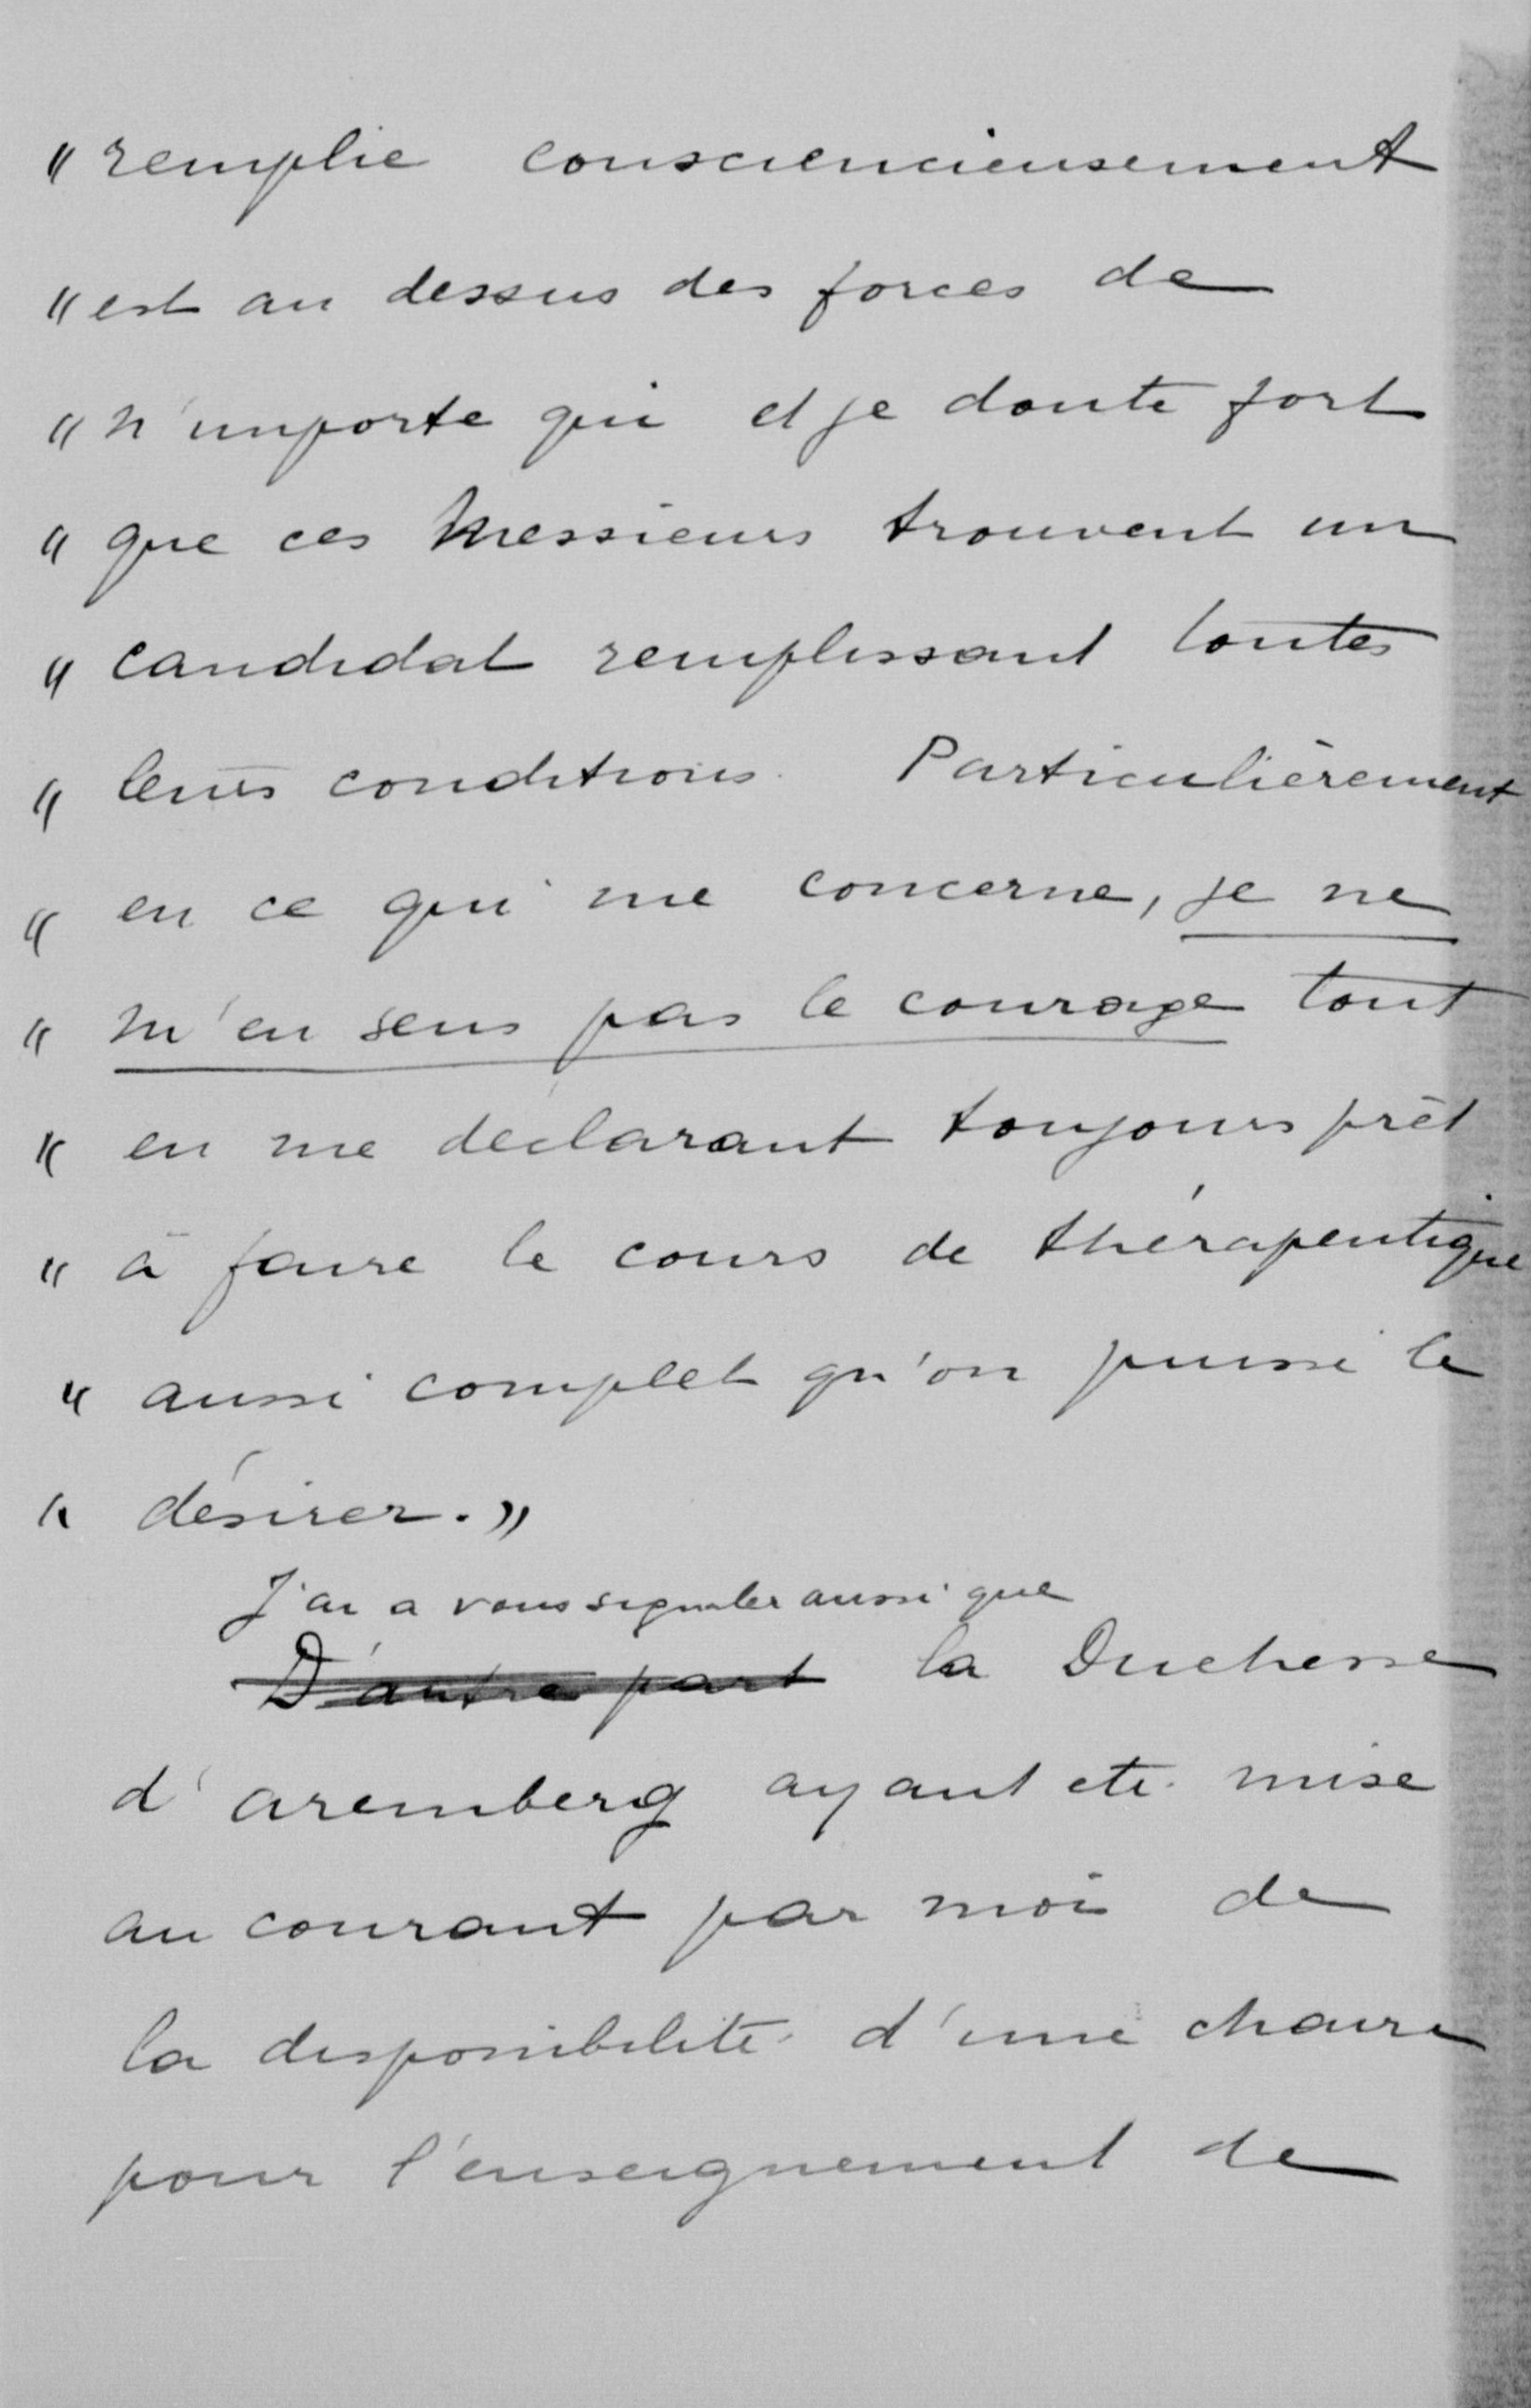 « remplie consciencieusement
« est au dessus des forces de
« n'importe qui et je doute fort
« que ces Messieurs trouvent un
« candidat remplissant toutes
« leurs conditions. Particulièrement
« en ce qui me concerne, je ne
« m'en sens pas le courage tout
« en me déclarant toujours prêt
« à faire le cours de thérapeutique
« aussi complet qu'on puisse le
« désirer. »
J'ai a vous signaler aussi que
D'autre part la Duchesse
d'aremberg ayant été mise
au courant par moi de
la disponibilité d'une chaire
pour l'enseignement de